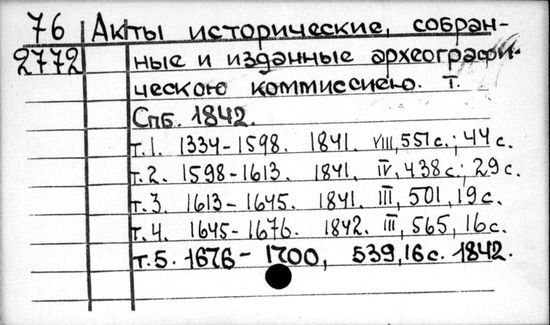 76 Акты исторические, собран-
2772 ные и изданные археографи-
ческою коммиссиею. т.
Спб. 1842.
т.1. 1334-1598. 1841. VIII, 551с.; 44с.
т.2. 1598-1613. 1841. IV, 438с.; 29с.
т.3. 1613-1645. 1841. III, 501, 19с.
т.4. 1645-1676. 1842. III, 565, 16с.
т.5. 1676-1700, 539, 16с. 1842.